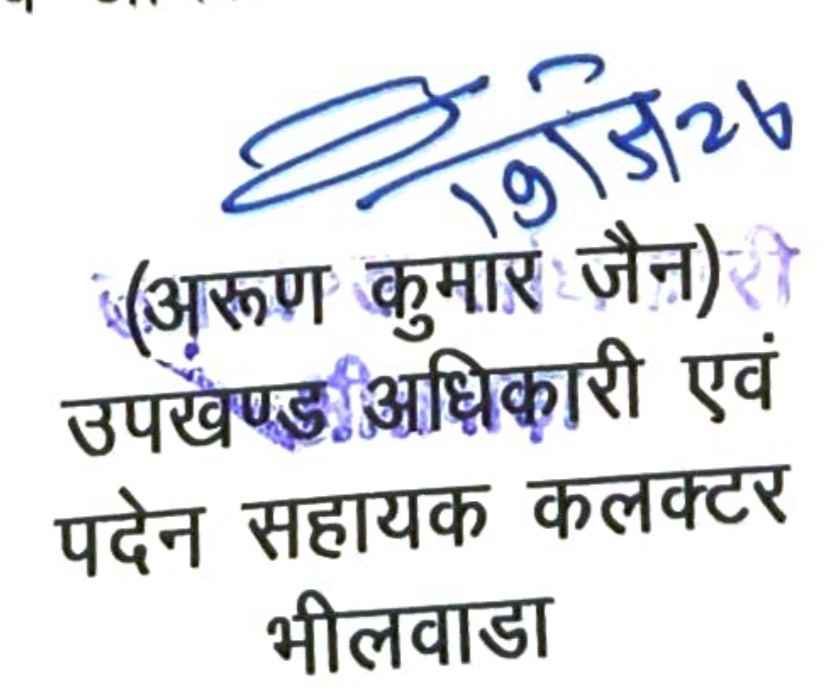 19/5/26
(अरूण कुमार जैन)
उपखण्ड अधिकारी एवं
पदेन सहायक कलक्टर
भीलवाडा